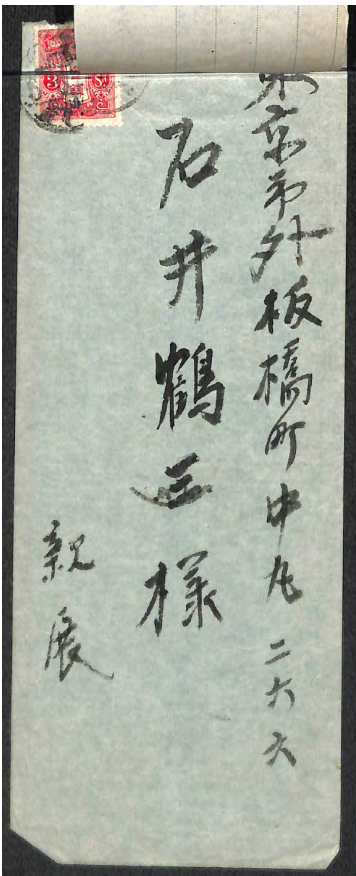 東京市外板橋町中丸二六六
石井鶴三様
親展